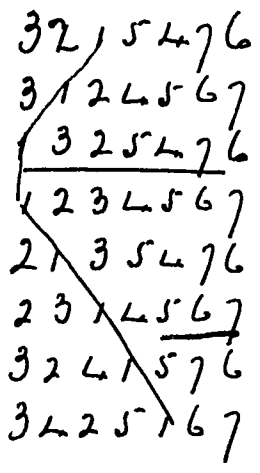 3 2 1 5 4 7 6
3 1 2 4 5 6 7
1 3 2 5 4 7 6
1 2 3 4 5 6 7
2 1 3 5 4 7 6
2 3 1 4 5 6 7
3 2 4 1 5 7 6
3 4 2 5 1 6 7